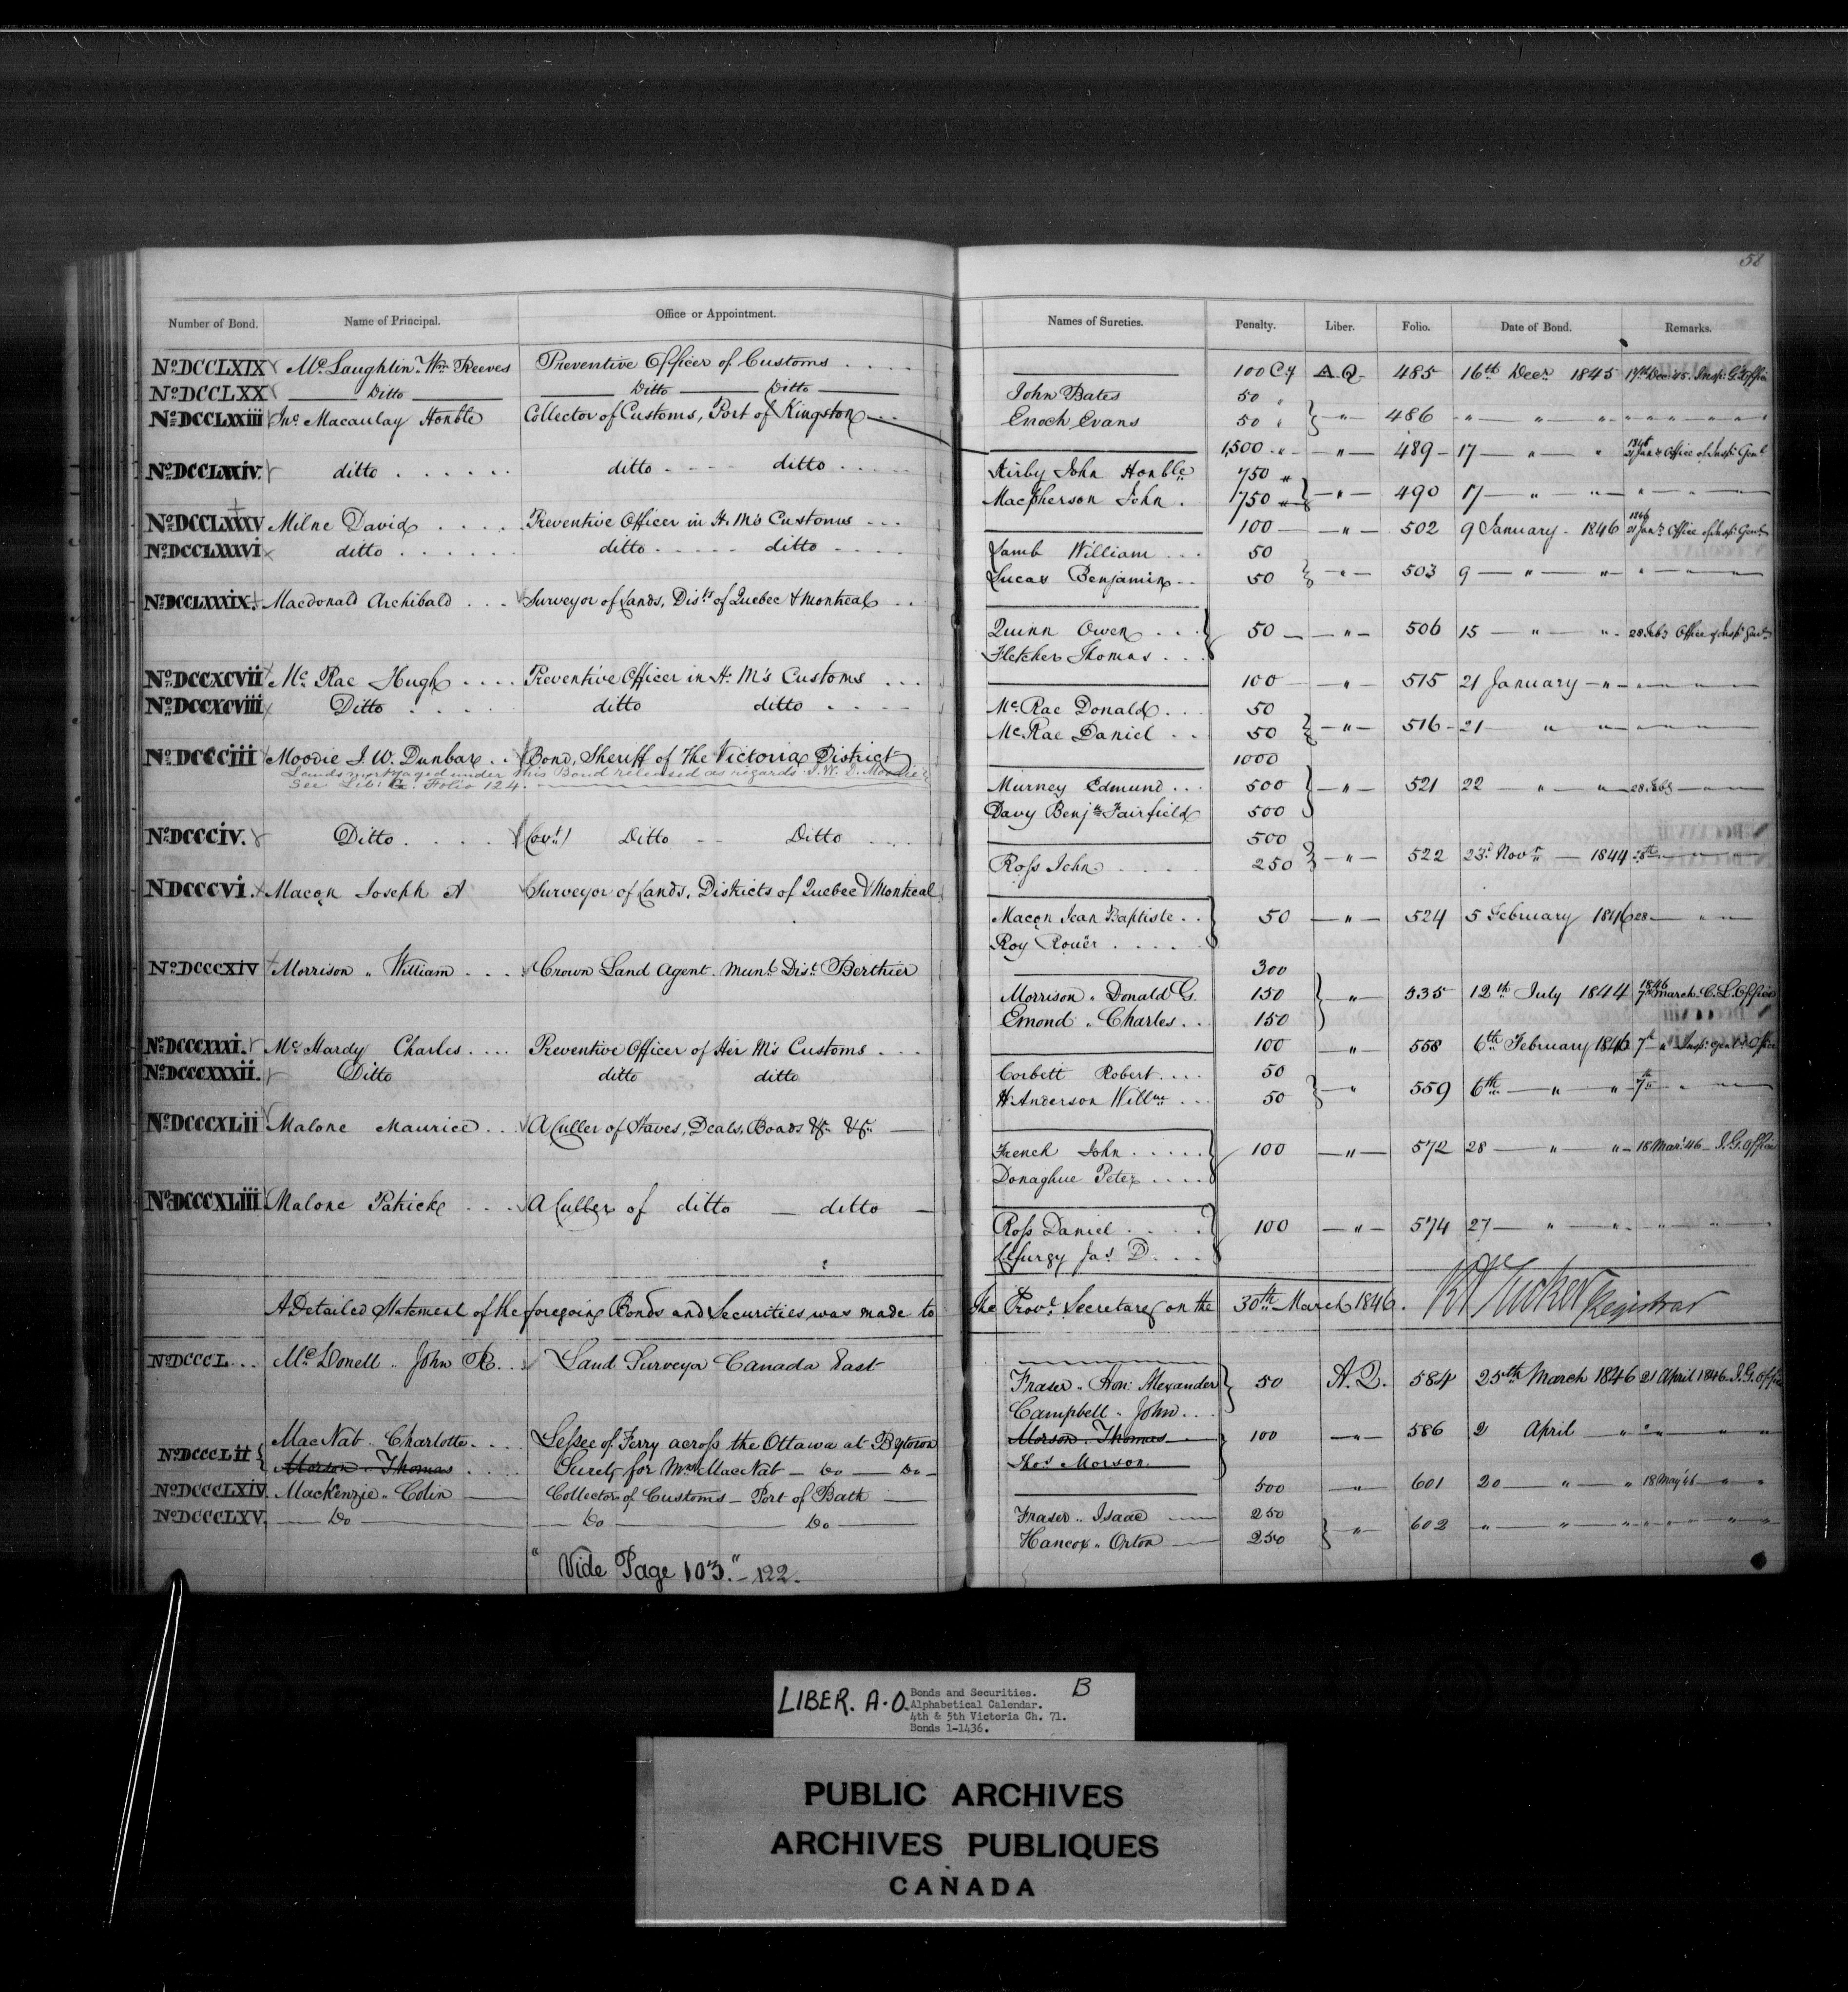 58
Number of Bond. Name of Principal. Office or Appointment. Names of Sureties. Penalty. Liber. Folio. Date of Bond. Remarks.
No. DCCLXIX Mc Laughlin " Wm Reeves Preventive Officer of Customs . . . . 100 Cy A Q 485 16th Decr 1845 17th Dec 45. Insp. G. Office
No. DCCLXX Ditto Ditto Ditto John Bates 50 "
Enoch Evans 50 " } " 486 " " " "
No. DCCLXXiii Jno. Macaulay Honble Collector of Customs, Port of Kingston 1,500 " " 489 17 " " 1846 21 Jany Office of Insp. Genl
No. DCCLXXiv. ditto . . . . . . ditto . . . . ditto . . . . . Kirby John Honble 750 "
Macpherson John . 750 " } " 490 17 " " " "
No. DCCLXXXV Milne David . . . . Preventive Officer in H. M's Customs . . . 100 " 502 9 January . 1846 1846 21 Jany Office of Insp. Genl
No. DCCLXXXVi ditto . . . . . . ditto . . . . . ditto . . . . . Lamb William . . . 50
Lucas Benjamin . . 50 } " 503 9 " " " "
No. DCCLXXXiX. Macdonald Archibald . . . Surveyor of Lands, Dists of Quebec & Montreal . .
Quinn Owen . . . 50 " 506 15 " " 28 Feby Office of Insp. Genl
Fletcher Thomas . . . }
No. DCCXCVii Mc Rae Hugh . . . . Preventive Officer in H. M's Customs . . . 100 " 515 21 January " "
No. DCCXCViii Ditto . . . . ditto ditto . . . . Mc Rae Donald . . . 50
Mc Rae Daniel . . 50 } " 516 21 " "
No. DCCCiii Moodie J. W. Dunbar . . Bond, Sheriff of The Victoria District 1000
Lands mortgaged under this Bond released as regards J. W. D. Moodie
See Lib: Folio 124.
Murney Edmund . . . 500 } " 521 22 " " 28 Feby "
Davy Benjn Fairfield 500
No. DCCCiv. Ditto . . . . (Covt) Ditto Ditto . . . 500
Ross John . . . . . 250 } " 522 23d Novr 1844 28th "
No DCCCVi. Macon Joseph A Surveyor of Lands, Districts of Quebec & Montreal
Macon Jean Baptiste . . } 50 " 524 5 February 1846 28 " "
Roy Rouër . . . . .
No. DCCCXiV Morrison " William . . . . Crown Land Agent . Munl Dist. Berthier 300
Morrison " Donald G. 150 } " 535 12th July 1844 1846 7th March C. L. Office
Emond " Charles . . 150
No. DCCCXXXi. Mc Hardy Charles . . . . Preventive Officer of Her M's Customs . . . 100 " 558 6th February 1846 7th " Insp. Genl's Office
No. DCCCXXXii. Ditto ditto ditto Corbett Robert . . . 50
H. Anderson Willm . . . 50 } " 559 6th " " 7th "
No. DCCCXLii Malone Maurice . . . A Culler of Staves, Deals, Boads &c. &c.
French John . . . . . } 100 " 572 28 " " 18 Mar. 46 I. G. Office
Donaghue Peter . . . .
No. DCCCXLiii Malone Patrick . . . A Culler of ditto ditto
Ross Daniel . . . . . } 100 " 574 27 " " " "
Jas. D. . . .
A Detailed Statement of the foregoing Bonds and Securities was made to The Provl Secretary on the 30th March 1846. R A Tucker Registrar
No. DCCCL . . . Mc Donell " John R. . . Land Surveyor Canada East
Fraser " Hon: Alexander } 50 A. Q. 584 25th March 1846 21 April 1846 I. G. Office
Campbell " John . . .
No. DCCCLii { Mac Nab " Charlotte . . . Lessee of Ferry across the Ottawa at Bytown Morson " Thomas 100 " 586 2 April " " " "
Morson " Thomas . . . . Surety for Mrs MacNab Do Do Thos Morson
No. DCCCLXiV MacKenzie " Colin Collector of Customs Port of Bath 500 " 601 20 " " 18 May 46 "
No. DCCCLXV. Do Do Do Fraser " Isaac 250
Hancox " Orton 250 } " 602 " " " "
" Vide Page 103." 122.
LIBER. A.O. Bonds and Securities. B
Alphabetical Calendar.
4th & 5th Victoria Ch. 71.
Bonds 1-1436.
PUBLIC ARCHIVES
ARCHIVES PUBLIQUES
CANADA